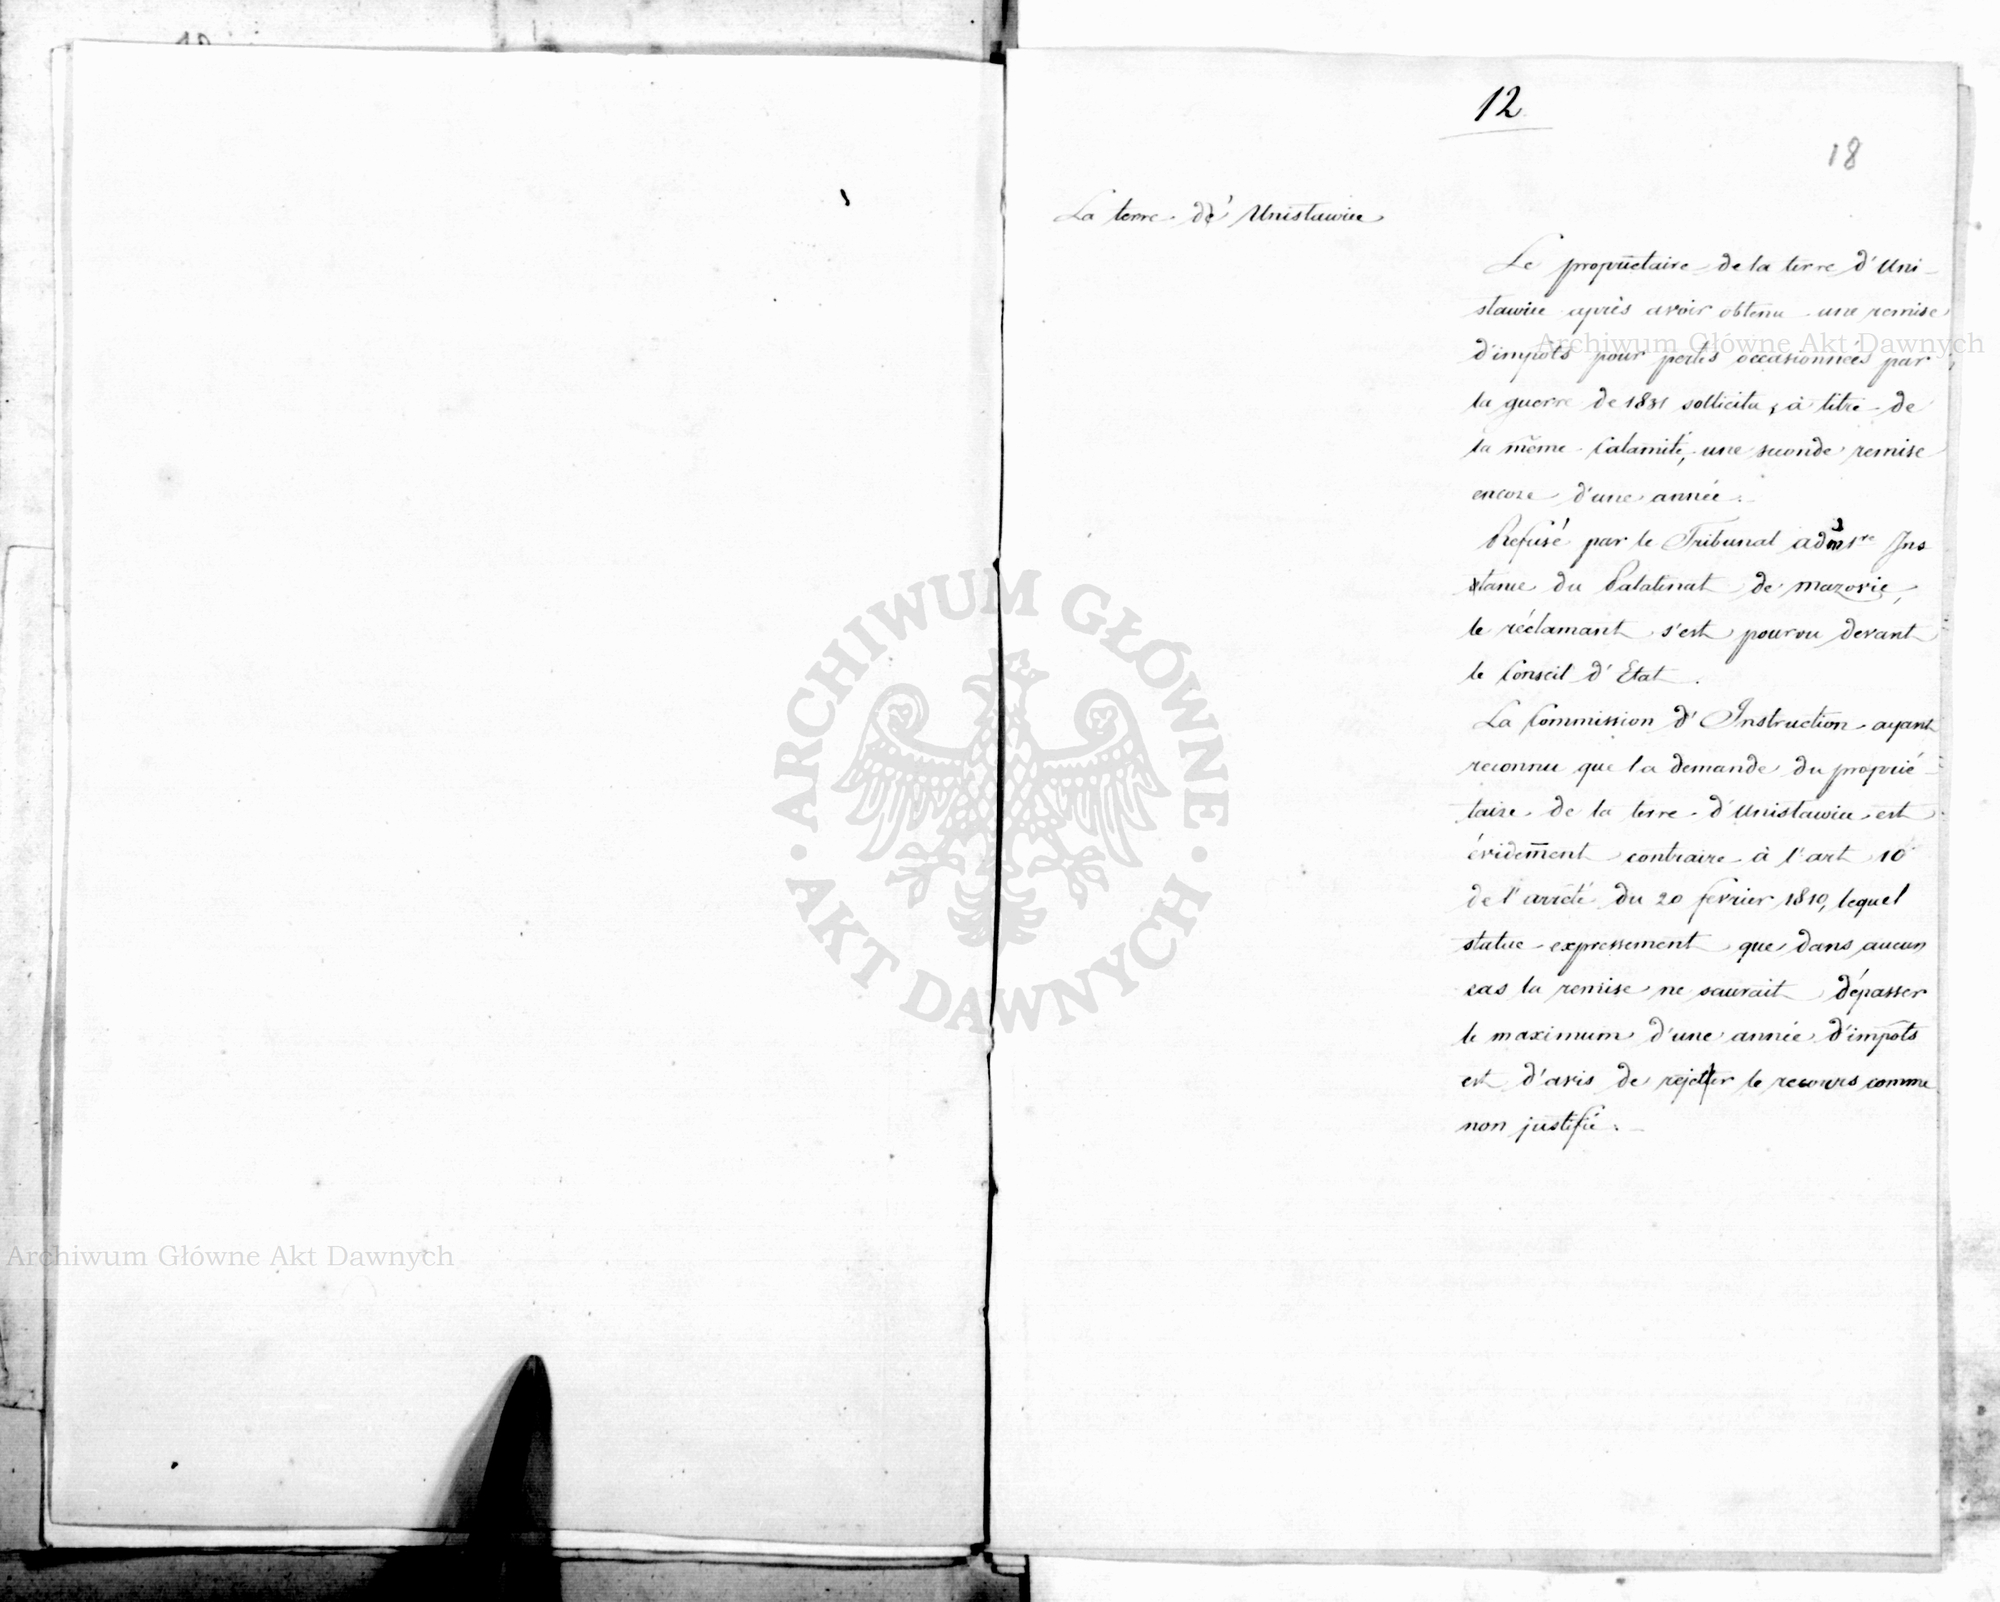 12
18
La terre de' Unisławice
Le propriétaire de la terre d'Uni-
sławice après avoir obtenu une remise
d'impôts pour pertes occasionnées par
la guerre de 1831 sollicita, à titre de
la même Calamité, une seconde remise
encore d'une année.
Refusé par le Tribunal adm 1re Ins
tance du Palatinat de Mazovie,
le réclamant s'est pourvu devant
le Conseil d'Etat.
La Commission d'Instruction ayant
reconnu que la demande du proprié-
taire de la terre d'Unisławice est
évidem̄ent contraire à l'art 10
de l'arrêté du 20 fevrier 1810, lequel
statue expressement que dans aucun
cas la remise ne saurait dépasser
le maximum d'une année d'impôts
est d'avis de rejetter le recours comme
non justifié.
Archiwum Główne Akt Dawnych
ARCHIWUM GŁÓWNE AKT DAWNYCH
Archiwum Główne Akt Dawnych